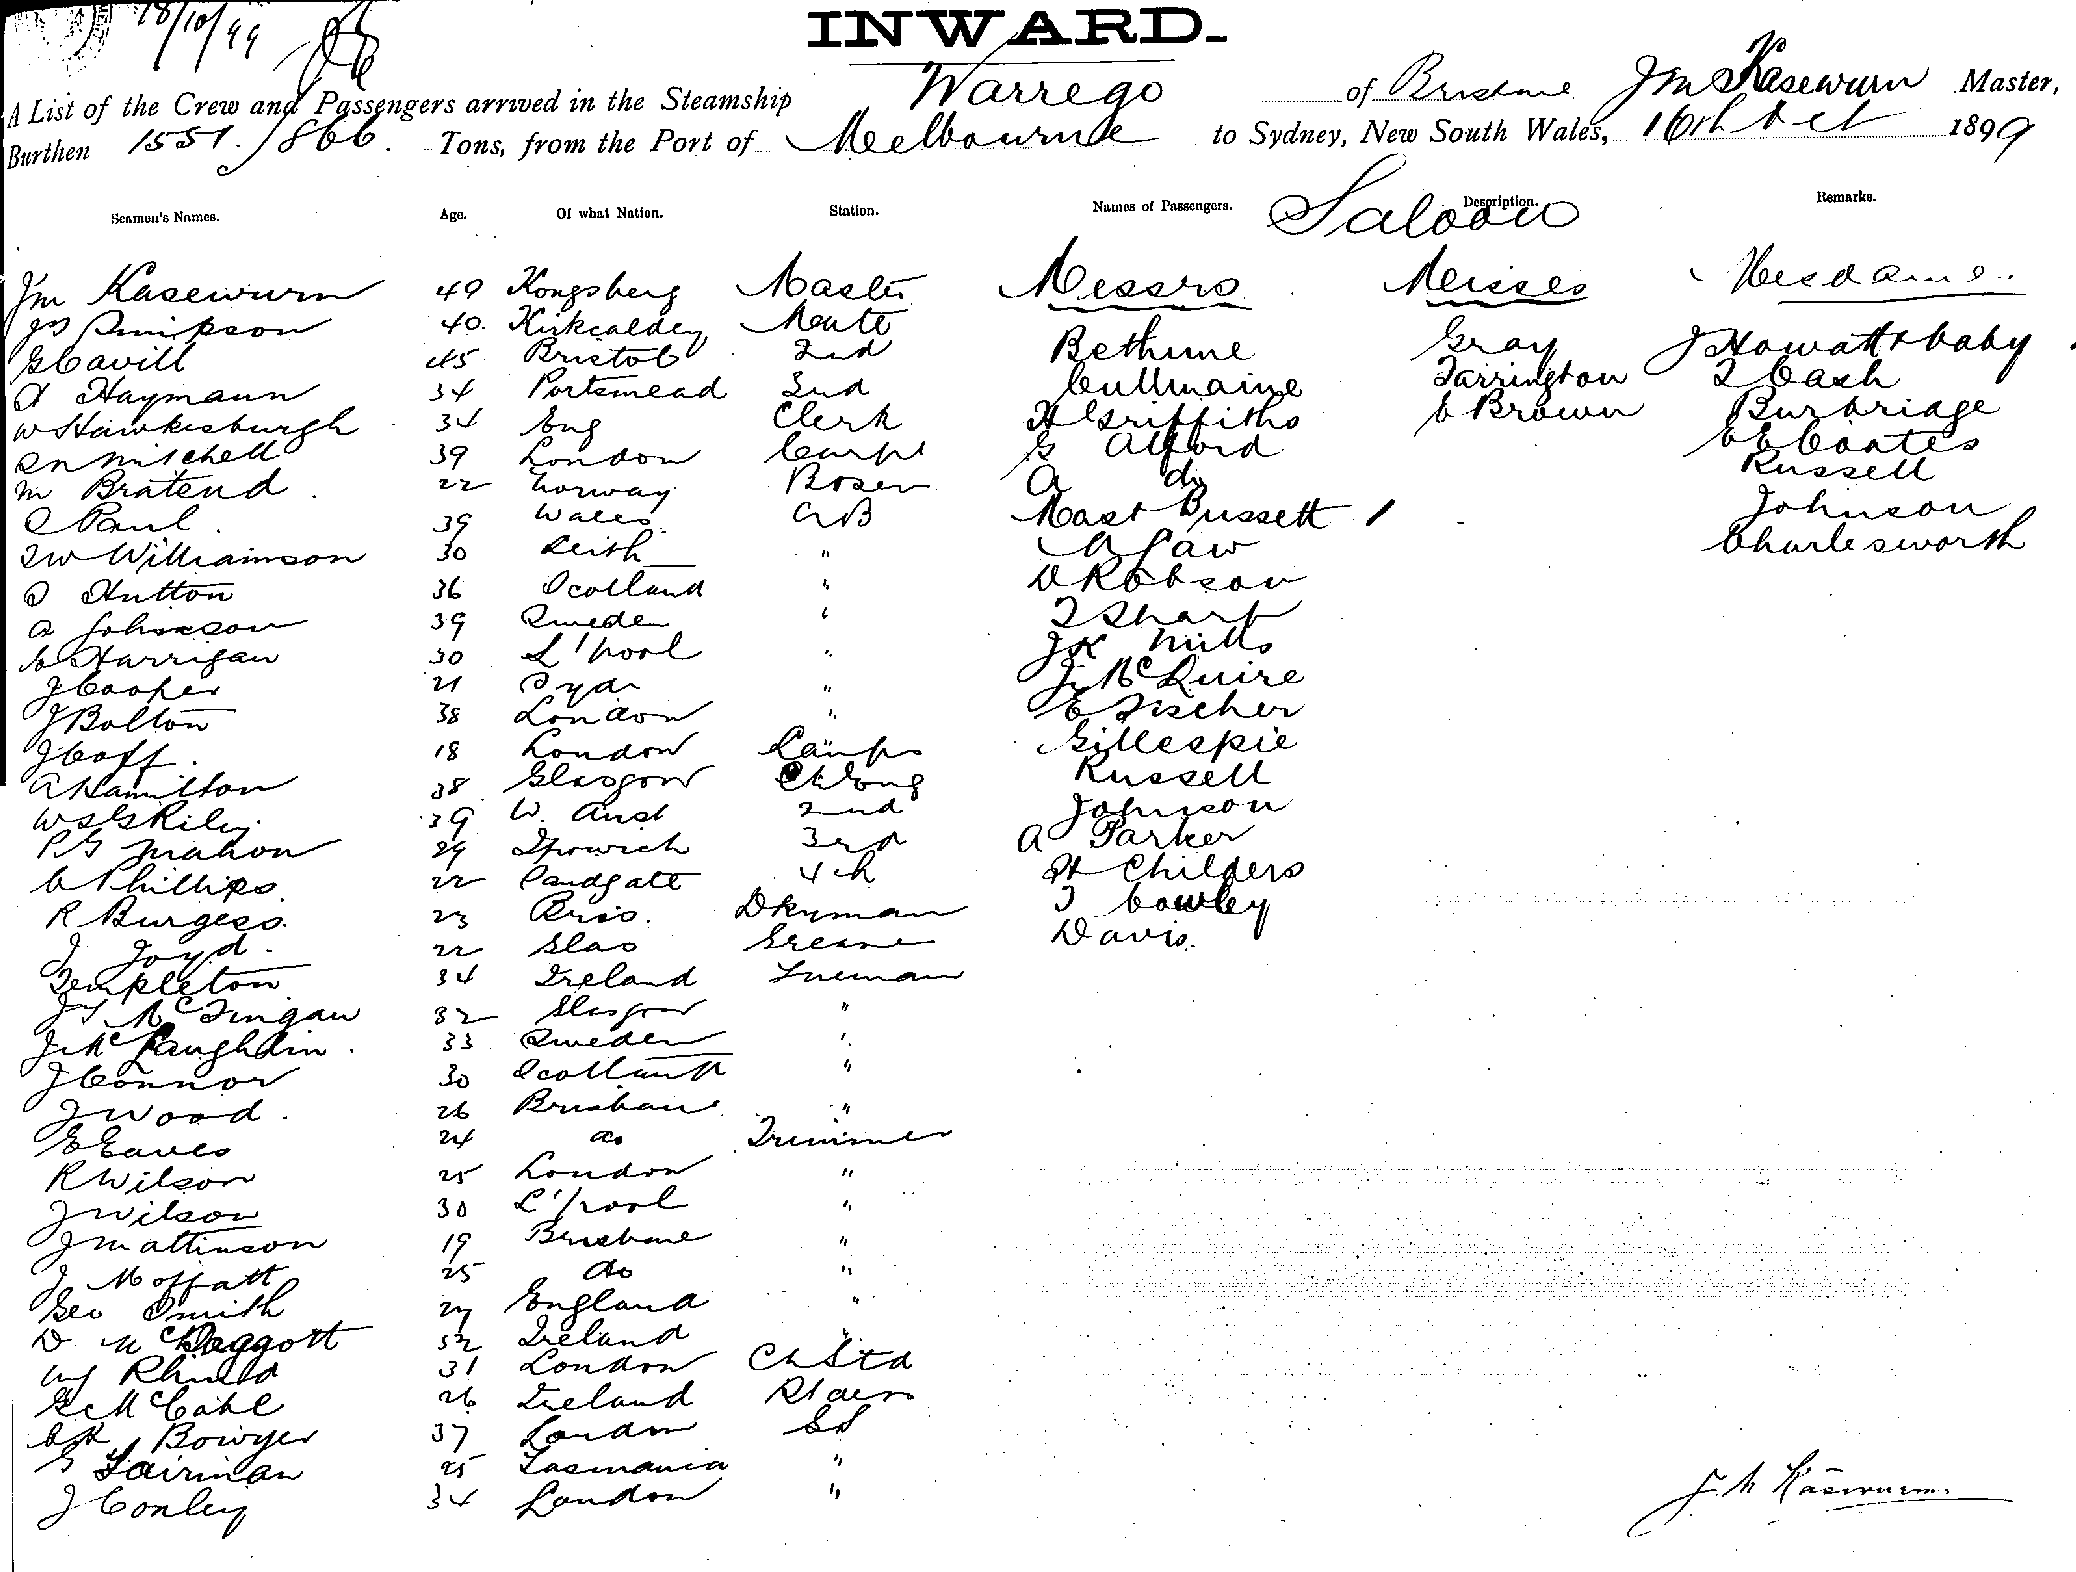 18/10/99
INWARD.
A List of the Crew and Passengers arrived in the Steamship Warrego of Brisbane J M Kasewurm Master,
Burthen 1551./866. Tons, from the Port of Melbourne to Sydney, New South Wales, 16th Oct 1899
Seamen's Names. Age. Of what Nation. Station. Names of Passengers. Saloon Description. Remarks.
Jm Kasewurm 49 Kongsberg Master Messrs Misses Mesdames
Js Simpson 40. Kirkcaldey Mate Bethune Gray J Howatt & baby
G Cavill 45 Bristol 2nd Cullmaine Farrington T Cash
A Haymann 34 Portsmead 3nd H Griffiths C Brown Burbridge
W Hawkesburgh 34 Eng Clerk G Alford C E Coates
mitchell 39 London Carp A do Russell
m Bratend 22 Norway Bosen Mast Bussett 1 Johnson
C Paul 39 Wales AB Law Charlesworth
Williamson 30 Leith " D Robson
D Hutton 36 Scotland " T Sharp
A Johnson 39 Sweden " Mills
C Harrigan 30 L'pool " J McQuire
J Cooper 21 Syd " E Fischer
J Bolton 38 London " Gillespie
J Coff 18 London Lamps Russell
A Hamilton 38 Glasgow Ch Eng Johnson
W S G Riley 39 W. Aust 2nd A Parker
P G Mahon 29 Ipswich 3rd H Childers
C Phillips 22 Sandgate 4th T Cowley
R Burgess. 23 Bris. Dkyman Davis.
J Joyd 22 Glas Grease
Templeton 34 Ireland Fireman
McFingan 32 Glasgow "
J McLaughlin 33 Sweden "
J Connor 30 Scotland "
J Wood 26 Brisbane "
E Eaves 24 do Trimmer
R Wilson 25 London "
J Wilson 30 L'pool "
J Mattinson 19 Brisbane "
J Moffatt 25 do "
Geo Smith 27 England "
D McDaggott 32 Ireland "
31 London Ch Std
McCahl 26 Ireland
Bowyer 37 London
Fairman 25 Tasmania "
J Conley 34 London "
J M Käsewurm.